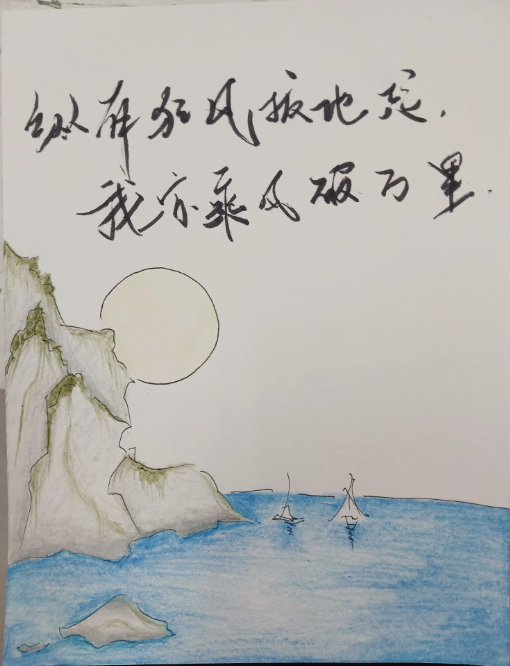 纵有狂风拔地起,
我亦乘风破万里.